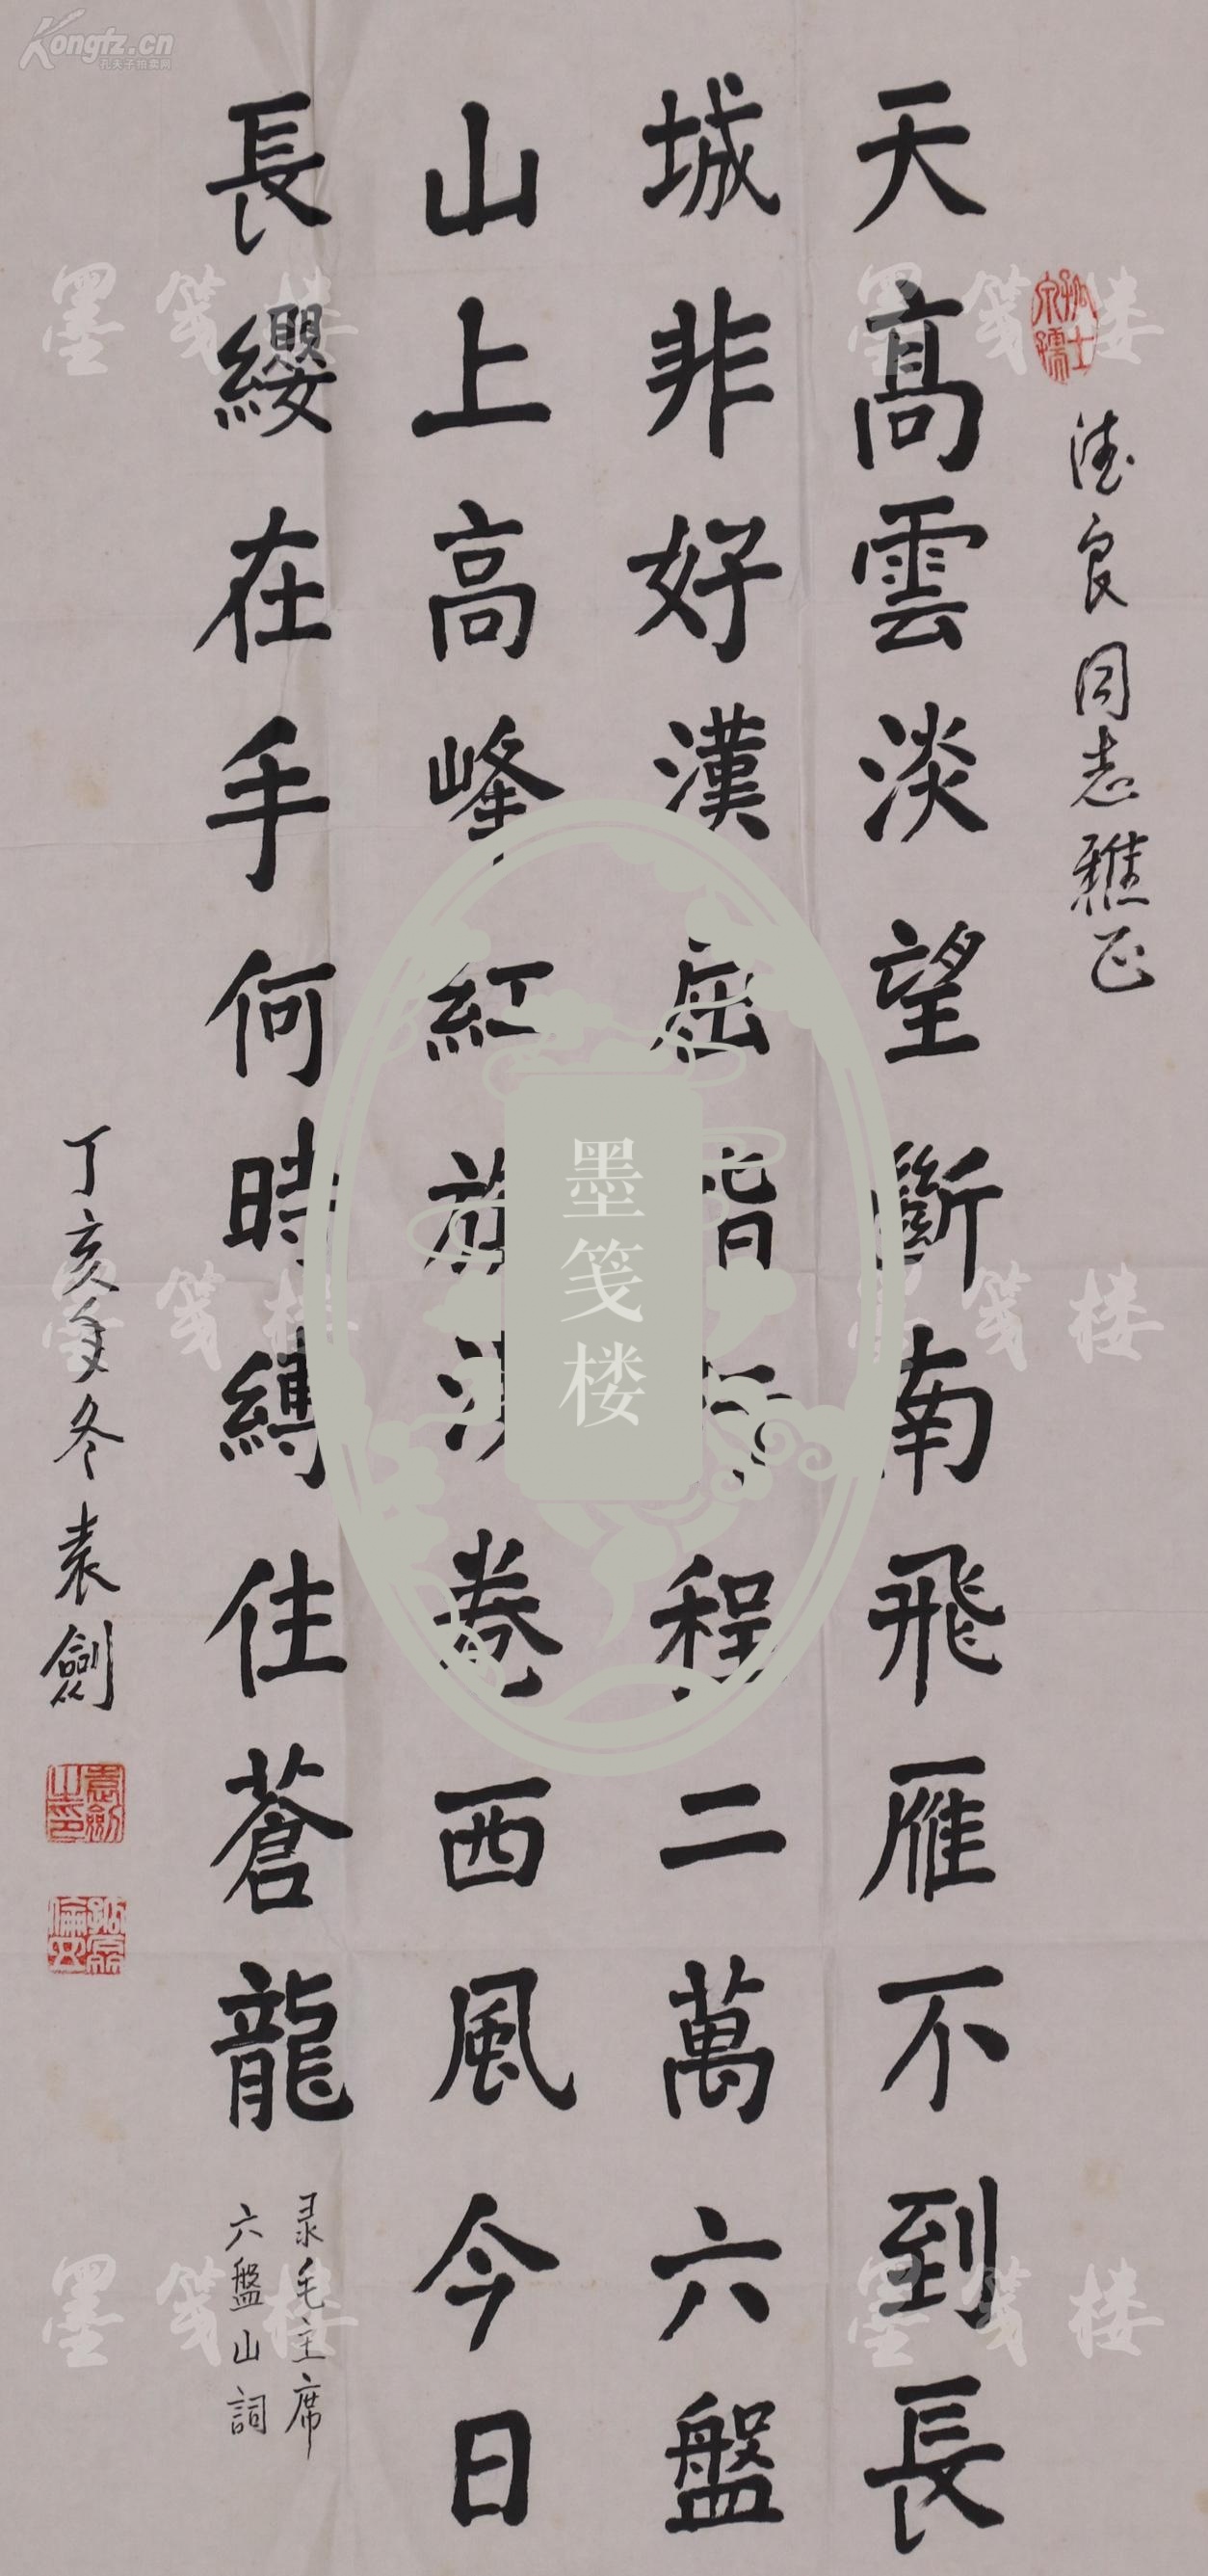 Kongfz.cn
孔夫子拍卖网
德良同志雅正
天髙雲淡望斷南飛雁不到長
城非好漢屈指行程二萬六盤
山上高峰紅旗漫卷西風今日
長纓在手何時縛住蒼龍
录毛主席
六盤山詞
丁亥年冬袁劍
袁劍之印
墨笺楼
墨笺楼
墨笺楼
墨笺楼
墨笺楼
墨笺楼
墨笺楼